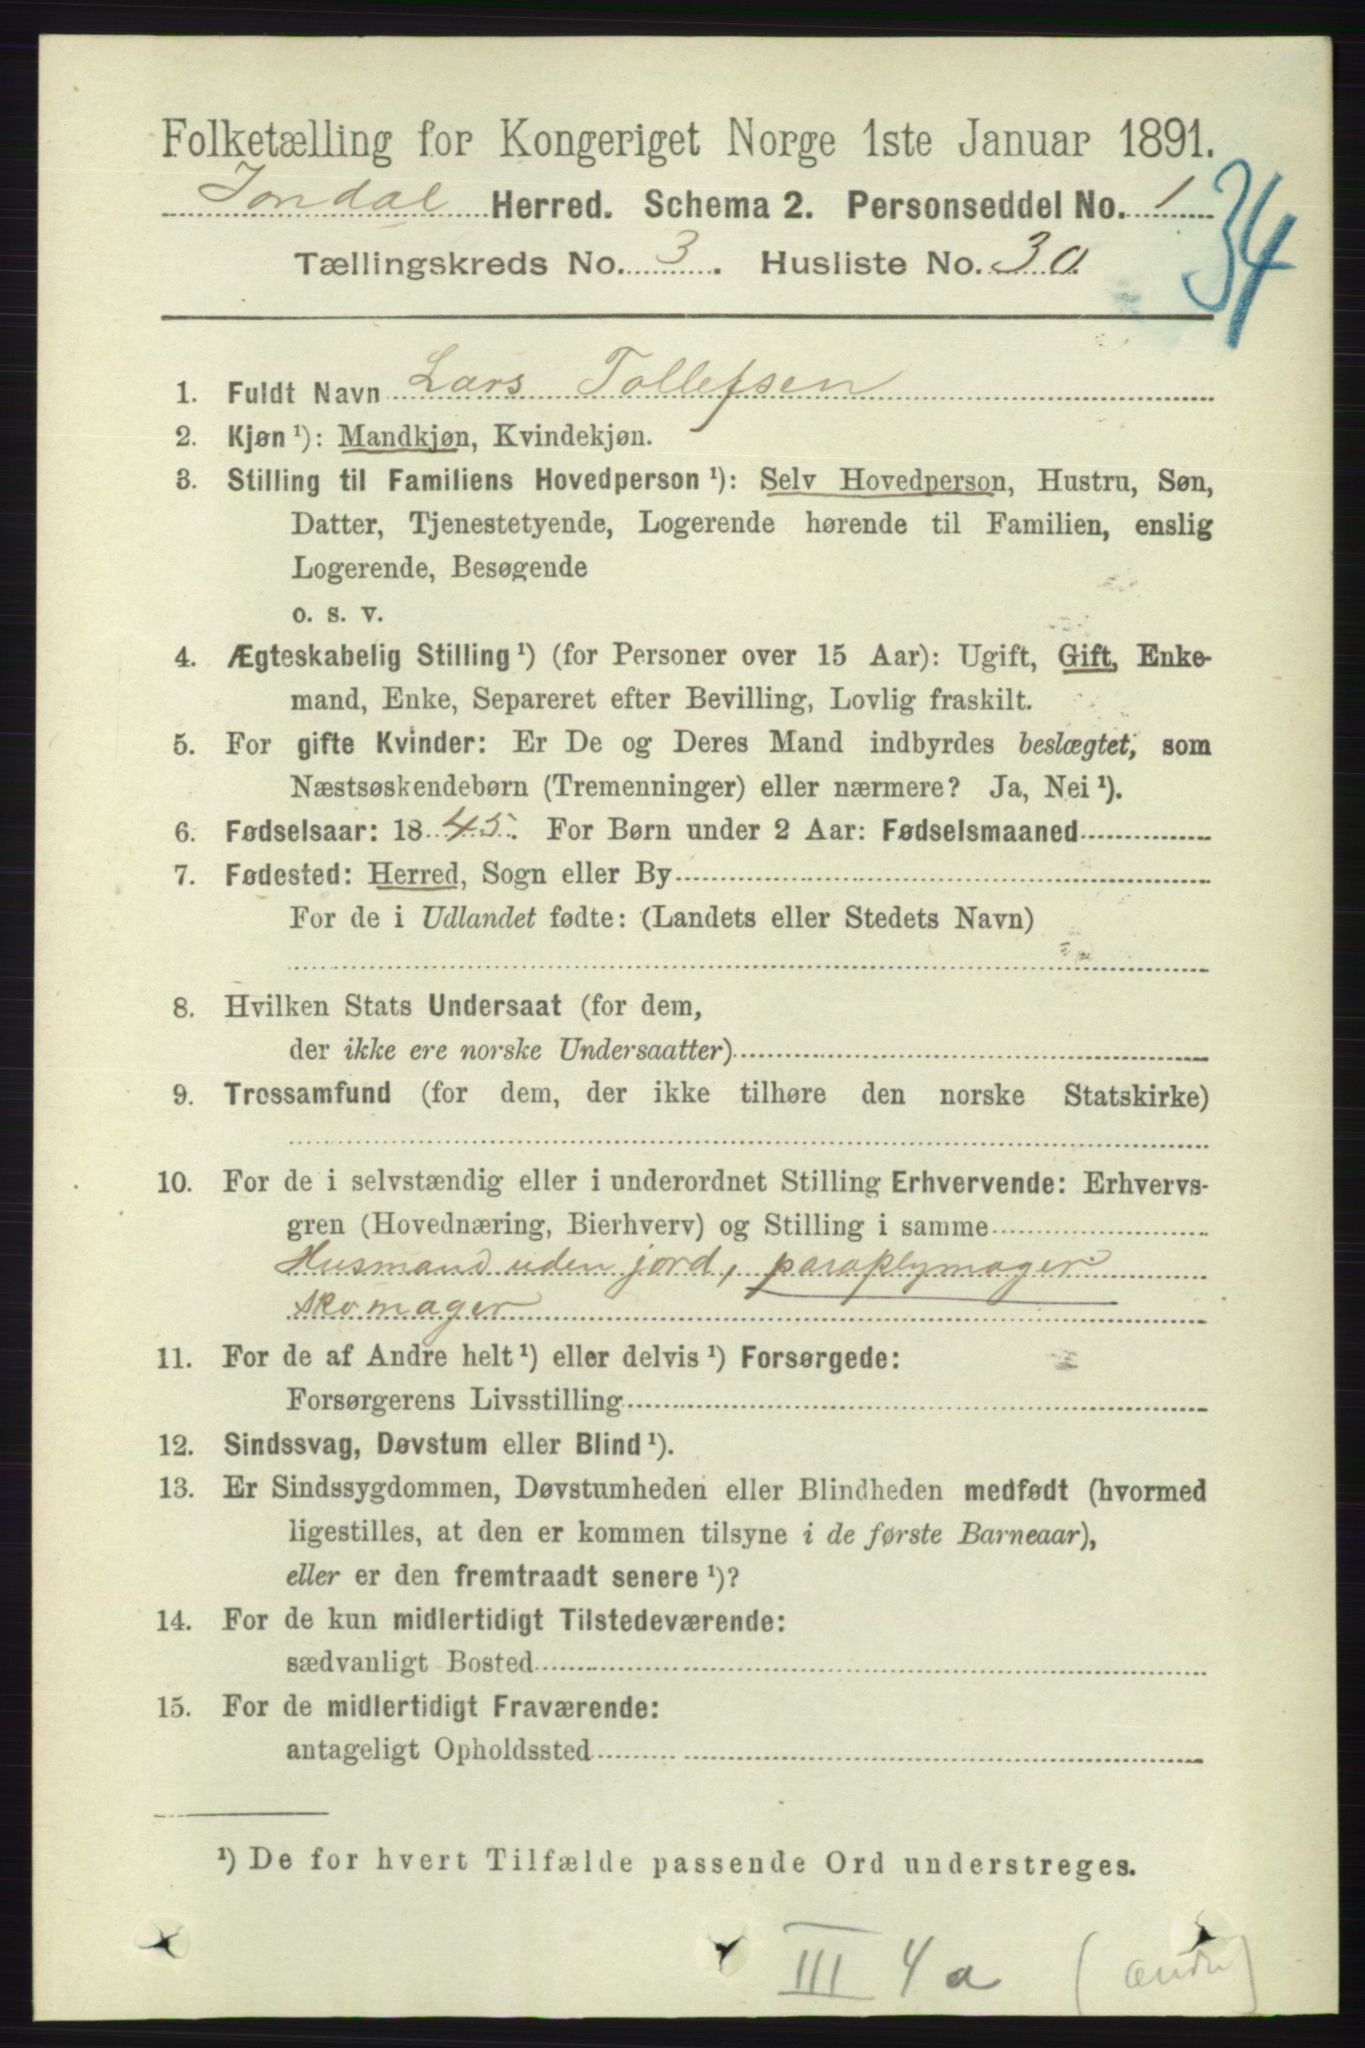 Folketælling for Kongeriget Norge 1ste Januar 1891.
34
Jondal Herred. Schema 2. Personseddel No. 1
Tællingskreds No. 3. Husliste No. 30.
1. Fuldt Navn Lars Tollefsen
2. Kjøn ¹): Mandkjøn, Kvindekjøn.
3. Stilling til Familiens Hovedperson ¹): Selv Hovedperson, Hustru, Søn,
Datter, Tjenestetyende, Logerende hørende til Familien, enslig
Logerende, Besøgende
o. s. v.
4. Ægteskabelig Stilling ¹) (for Personer over 15 Aar): Ugift, Gift, Enke-
mand, Enke, Separeret efter Bevilling, Lovlig fraskilt.
5. For gifte Kvinder: Er De og Deres Mand indbyrdes beslægtet, som
Næstsøskendebørn (Tremenninger) eller nærmere? Ja, Nei ¹).
6. Fødselsaar: 1845. For Børn under 2 Aar: Fødselsmaaned
7. Fødested: Herred, Sogn eller By
For de i Udlandet fødte: (Landets eller Stedets Navn)
8. Hvilken Stats Undersaat (for dem,
der ikke ere norske Undersaatter)
9. Trossamfund (for dem, der ikke tilhøre den norske Statskirke)
10. For de i selvstændig eller i underordnet Stilling Erhvervende: Erhvervs-
gren (Hovednæring, Bierhverv) og Stilling i samme
Husmand uden jord, paraplymager
skomager
11. For de af Andre helt ¹) eller delvis ¹) Forsørgede:
Forsørgerens Livsstilling
12. Sindssvag, Døvstum eller Blind ¹).
13. Er Sindssygdommen, Døvstumheden eller Blindheden medfødt (hvormed
ligestilles, at den er kommen tilsyne i de første Barneaar),
eller er den fremtraadt senere ¹)?
14. For de kun midlertidigt Tilstedeværende:
sædvanligt Bosted
15. For de midlertidigt Fraværende:
antageligt Opholdssted
¹) De for hvert Tilfælde passende Ord understreges.
III 4a (andre)